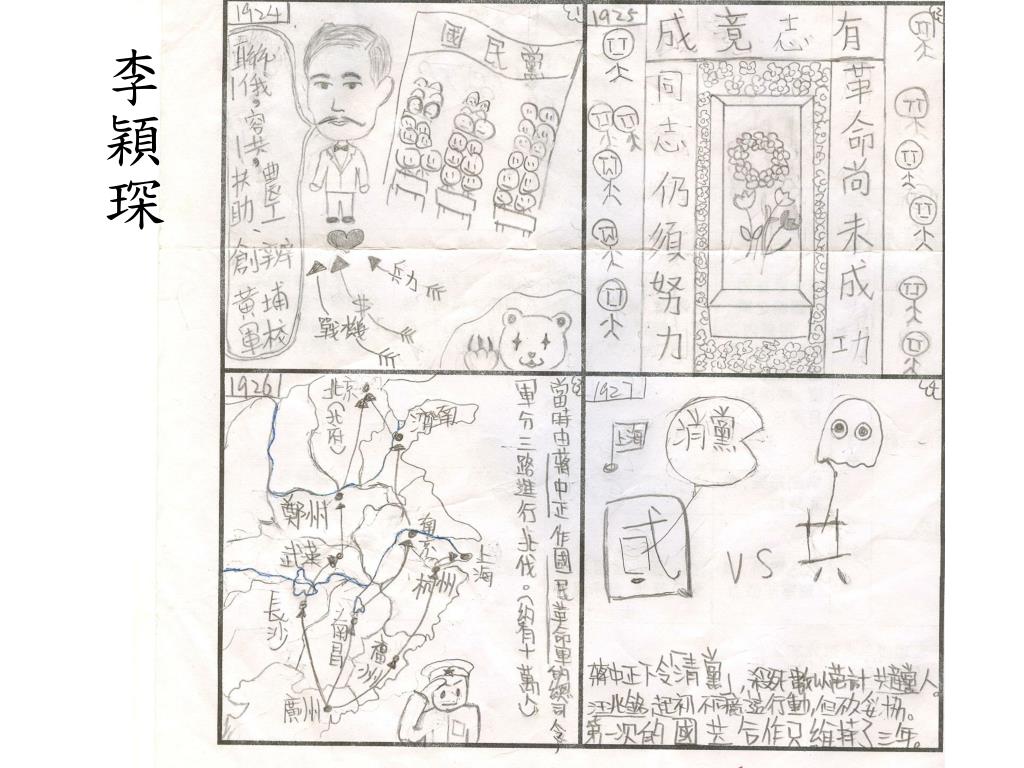 李穎琛
1924
聯俄,容共,農工
扶助、
創辦
黃埔
軍校
國民黨
兵力
戰機
1925
有志竟成
革命尚未成功
同志仍須努力
1926
北京
(北府)
濟南
鄭州
武漢
南京
上海
杭州
長沙
南昌
福州
廣州
當時由蔣中正作國民革命軍的總司令,
軍分三路進行北伐。(約有十萬人)
1927
上海
消黨
國
VS
共
蔣中正下令「清黨」,殺死數以萬計共產黨人。
汪兆銘起初不滿這行動,但改妥協。
第一次的國共合作只維持了三年。